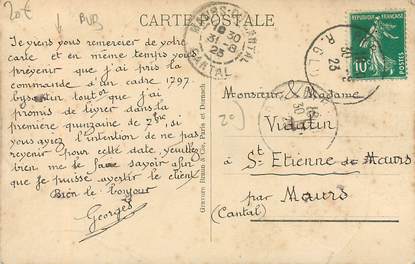 20€
PUB
CARTE POSTALE
Je viens vous remercier de votre
carte et en même temps vous
prévenir que j'ai pris la
commande d'un cadre 1797
byzantin tout or que j'ai
promis de livrer dans la
première quinzaine de 7bre; si
vous aviez l'intention de ne pas
revenir pour cette date, veuillez
bien me le faire savoir afin
que je puisse avertir le client
Bien le bonjour
Georges
Gravure Braun & Cie, Paris et Dornach
MAURS-DU-CANTAL
18 30
31-8
23
CANTAL
10c
Monsieur & Madame
20
à St Etienne de Maurs
par Maurs
(Cantal)